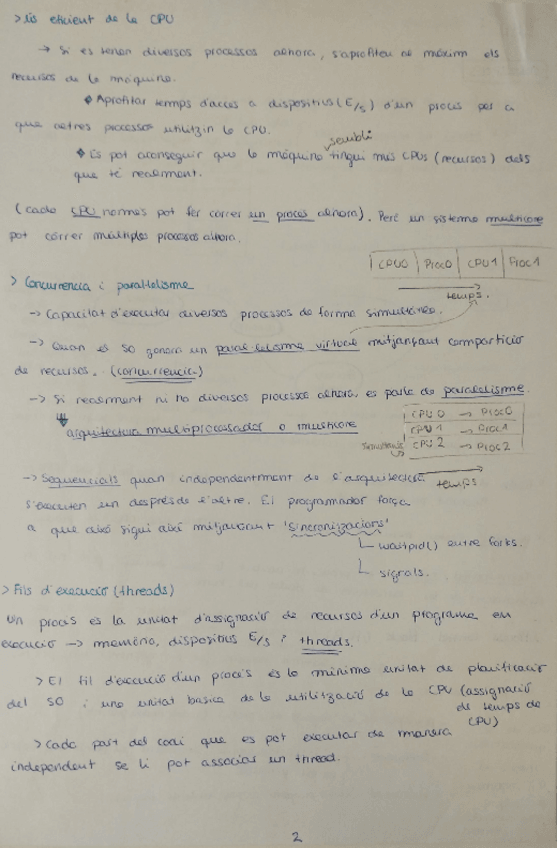 > Ús eficient de la CPU
→ Si es tenen diversos processos alhora, s'aprofiten al màxim els
recursos de la màquina.
◆ Aprofitar temps d'accés a dispositius (E/S) d'un procés per a
que altres processos utilitzin la CPU.
sembli
◆ Es pot aconseguir que la màquina tingui més CPUs (recursos) dels
que té realment.
(cada CPU només pot fer córrer un procés alhora). Però un sistema multicore
pot córrer múltiples processos alhora.
CPU0 | Proc0 | CPU1 | Proc1
temps.
> Concurrència i paral·lelisme
→ Capacitat d'executar diversos processos de forma simultània.
→ Quan el SO genera un paral·lelisme virtual mitjançant compartició
de recursos. (concurrència)
→ Si realment hi ha diversos processos alhora, es parla de paral·lelisme.
arquitectura multiprocessador o multicore
CPU 0 → Proc0
CPU 1 → Proc1
CPU 2 → Proc2
temps
→ Seqüencials quan independentment de l'arquitectura
s'executen un després de l'altre. El programador força
a que això sigui així mitjançant 'sincronitzacions'
waitpid() entre forks.
signals.
> Fils d'execució (threads)
Un procés és la unitat d'assignació de recursos d'un programa en
execució → memòria, dispositius E/S i threads.
> El fil d'execució d'un procés és la mínima unitat de planificació
del SO i una unitat bàsica de la utilització de la CPU (assignació
de temps de
CPU)
> Cada part del codi que es pot executar de manera
independent se li pot associar un thread.
2